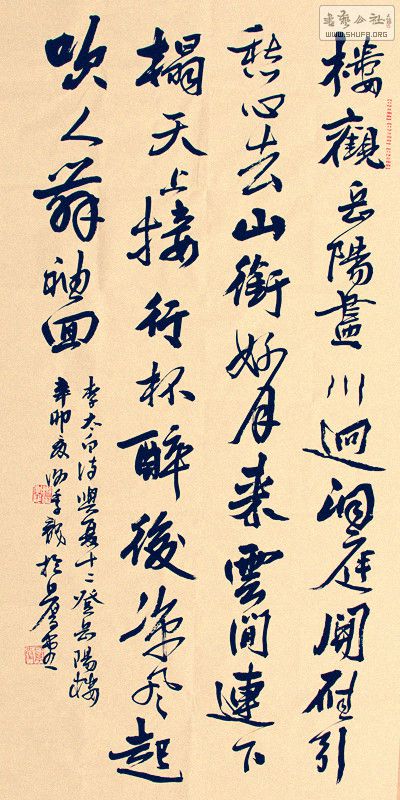 書藝公社
WWW.SHUFA.ORG
樓觀岳陽盡川迥洞庭開雁引
愁心去山銜好月來雲間連下
榻天上接行杯醉後凉风起
吹人舞袖回
李太白诗與夏十二登岳陽樓
辛卯夏